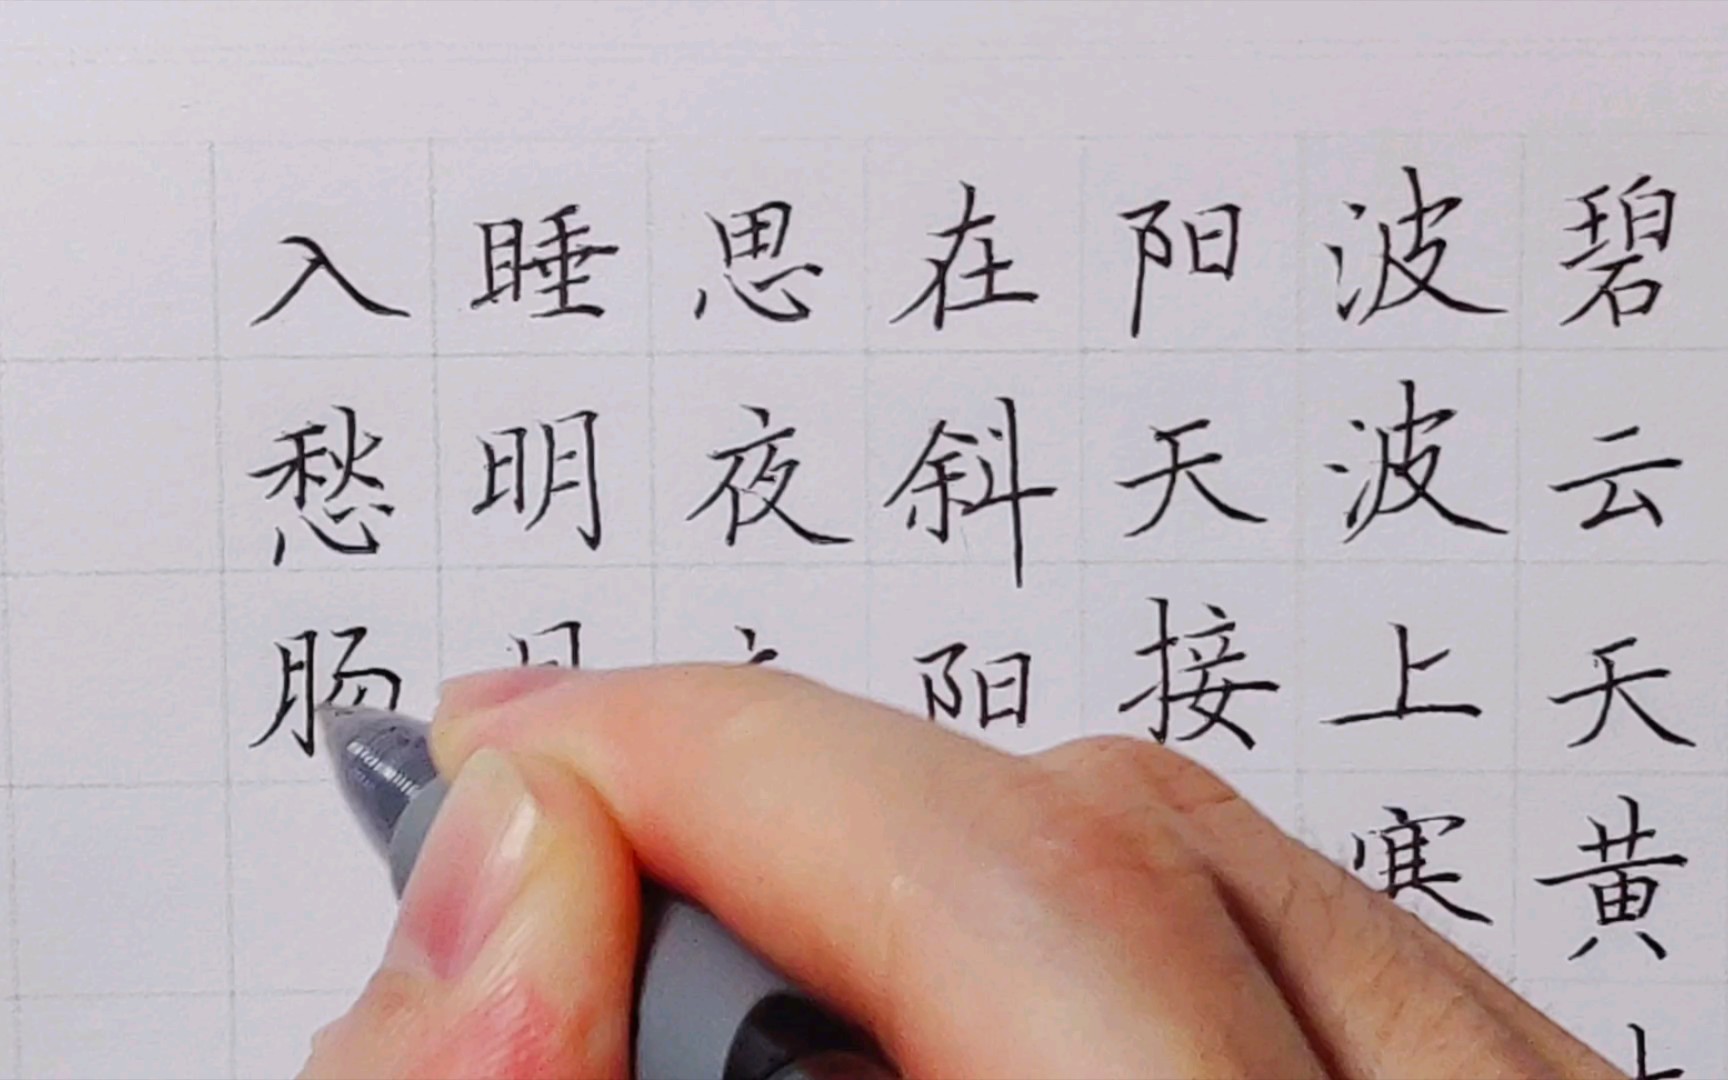 碧云天黄
波波上寒
阳天接
在斜阳
思夜
睡明
入愁肠